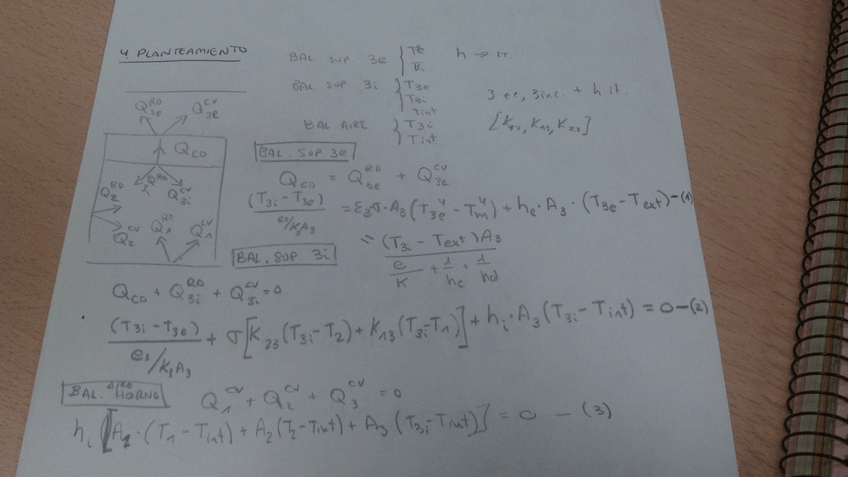 4. PLANTEAMIENTO
BAL SUP 3e { T3e
h → it.
BAL SUP 3i { T3e
T3i
Tint
3 ec, 3inc + h it.
BAL AIRE { T3i
Tint
[K12, K13, K23]
Q3e^RD Q3e^CV
QCD
Q2^RD Q3i^RD Q3i^CV
Q2^CV Q1^RD Q1^CV
BAL. SUP 3e
QCD = Q3e^RD + Q3e^CV
(T3i - T3e) / e3/K3A3 = ε3·σ·A3 (T3e^4 - Tm^4) + he·A3·(T3e - Text) - (1)
= (T3i - Text)A3 / e/K + 1/he + 1/hd
BAL. SUP. 3i
QCD + Q3i^RD + Q3i^CV = 0
(T3i - T3e) / e3/K3A3 + σ[K23(T3i - T2) + K13(T3i - T1)] + hi·A3(T3i - Tint) = 0 - (2)
BAL. AIRE HORNO
Q1^CV + Q2^CV + Q3^CV = 0
hi [A1·(T1 - Tint) + A2(T2 - Tint) + A3(T3i - Tint)] = 0 - (3)